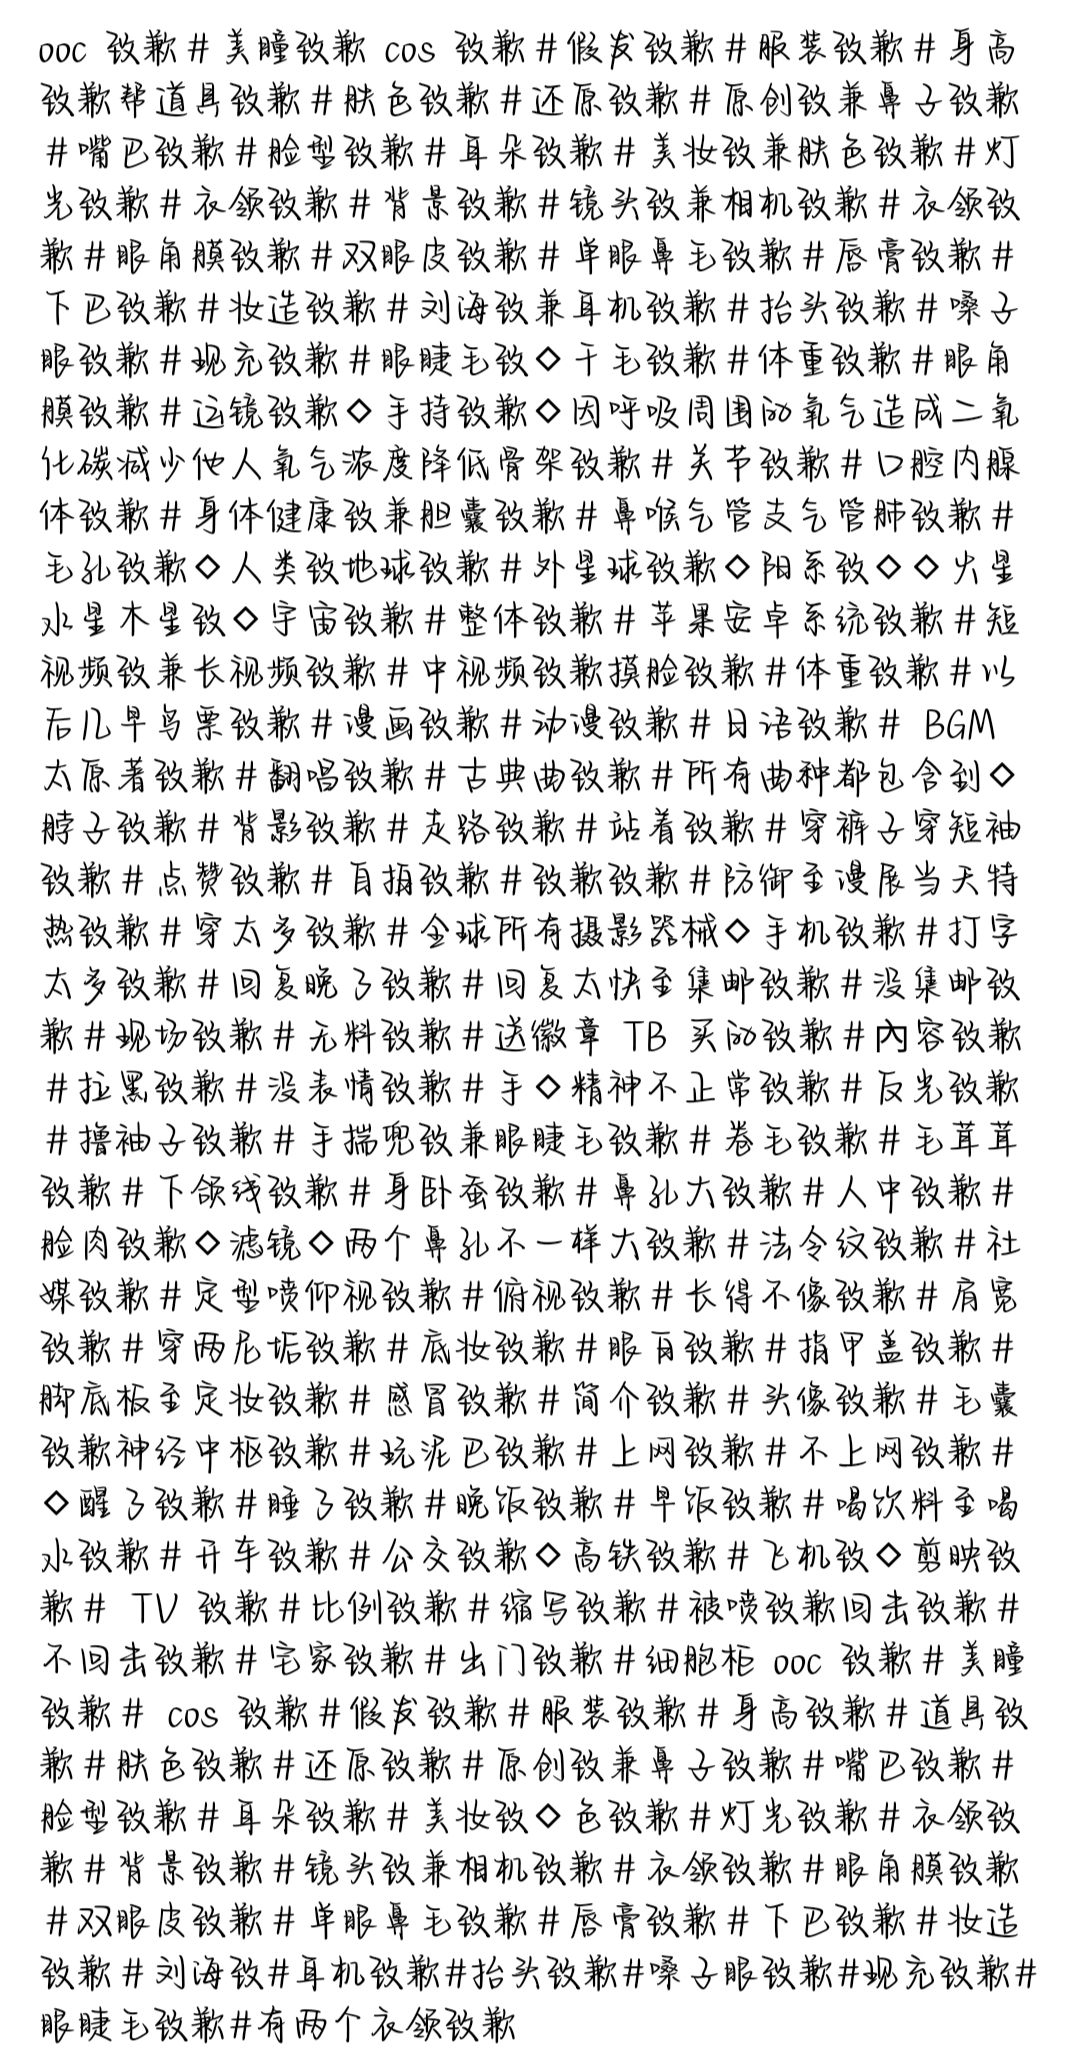 ooc 致歉#美瞳致歉 cos 致歉#假发致歉#服装致歉#身高
致歉帮道具致歉#肤色致歉#还原致歉#原创致兼鼻子致歉
#嘴巴致歉#脸型致歉#耳朵致歉#美妆致兼肤色致歉#灯
光致歉#衣领致歉#背景致歉#镜头致兼相机致歉#衣领致
歉#眼角膜致歉#双眼皮致歉#单眼鼻毛致歉#唇膏致歉#
下巴致歉#妆造致歉#刘海致兼耳机致歉#抬头致歉#嗓子
眼致歉#现充致歉#眼睫毛致◇干毛致歉#体重致歉#眼角
膜致歉#运镜致歉◇手持致歉◇因呼吸周围的氧气造成二氧
化碳减少他人氧气浓度降低骨架致歉#关节致歉#口腔内腺
体致歉#身体健康致兼胆囊致歉#鼻喉气管支气管肺致歉#
毛孔致歉◇人类致地球致歉#外星球致歉◇阳系致◇◇火星
水星木星致◇宇宙致歉#整体致歉#苹果安卓系统致歉#短
视频致兼长视频致歉#中视频致歉摸脸致歉#体重致歉#以
后几早鸟票致歉#漫画致歉#动漫致歉#日语致歉# BGM
太原著致歉#翻唱致歉#古典曲致歉#所有曲种都包含到◇
脖子致歉#背影致歉#走路致歉#站着致歉#穿裤子穿短袖
致歉#点赞致歉#自拍致歉#致歉致歉#防御至漫展当天特
热致歉#穿太多致歉#全球所有摄影器械◇手机致歉#打字
太多致歉#回复晚了致歉#回复太快至集邮致歉#没集邮致
歉#现场致歉#无料致歉#送徽章 TB 买的致歉#內容致歉
#拉黑致歉#没表情致歉#手◇精神不正常致歉#反光致歉
#撸袖子致歉#手揣兜致兼眼睫毛致歉#卷毛致歉#毛茸茸
致歉#下颌线致歉#身卧蚕致歉#鼻孔大致歉#人中致歉#
脸肉致歉◇滤镜◇两个鼻孔不一样大致歉#法令纹致歉#社
媒致歉#定型喷仰视致歉#俯视致歉#长得不像致歉#肩宽
致歉#穿两尼垢致歉#底妆致歉#眼百致歉#指甲盖致歉#
脚底板至定妆致歉#感冒致歉#简介致歉#头像致歉#毛囊
致歉神经中枢致歉#玩泥巴致歉#上网致歉#不上网致歉#
◇醒了致歉#睡了致歉#晚饭致歉#早饭致歉#喝饮料至喝
水致歉#开车致歉#公交致歉◇高铁致歉#飞机致◇剪映致
歉# TV 致歉#比例致歉#缩写致歉#被喷致歉回击致歉#
不回击致歉#宅家致歉#出门致歉#细胞柜 ooc 致歉#美瞳
致歉# cos 致歉#假发致歉#服装致歉#身高致歉#道具致
歉#肤色致歉#还原致歉#原创致兼鼻子致歉#嘴巴致歉#
脸型致歉#耳朵致歉#美妆致◇色致歉#灯光致歉#衣领致
歉#背景致歉#镜头致兼相机致歉#衣领致歉#眼角膜致歉
#双眼皮致歉#单眼鼻毛致歉#唇膏致歉#下巴致歉#妆造
致歉#刘海致#耳机致歉#抬头致歉#嗓子眼致歉#现充致歉#
眼睫毛致歉#有两个衣领致歉